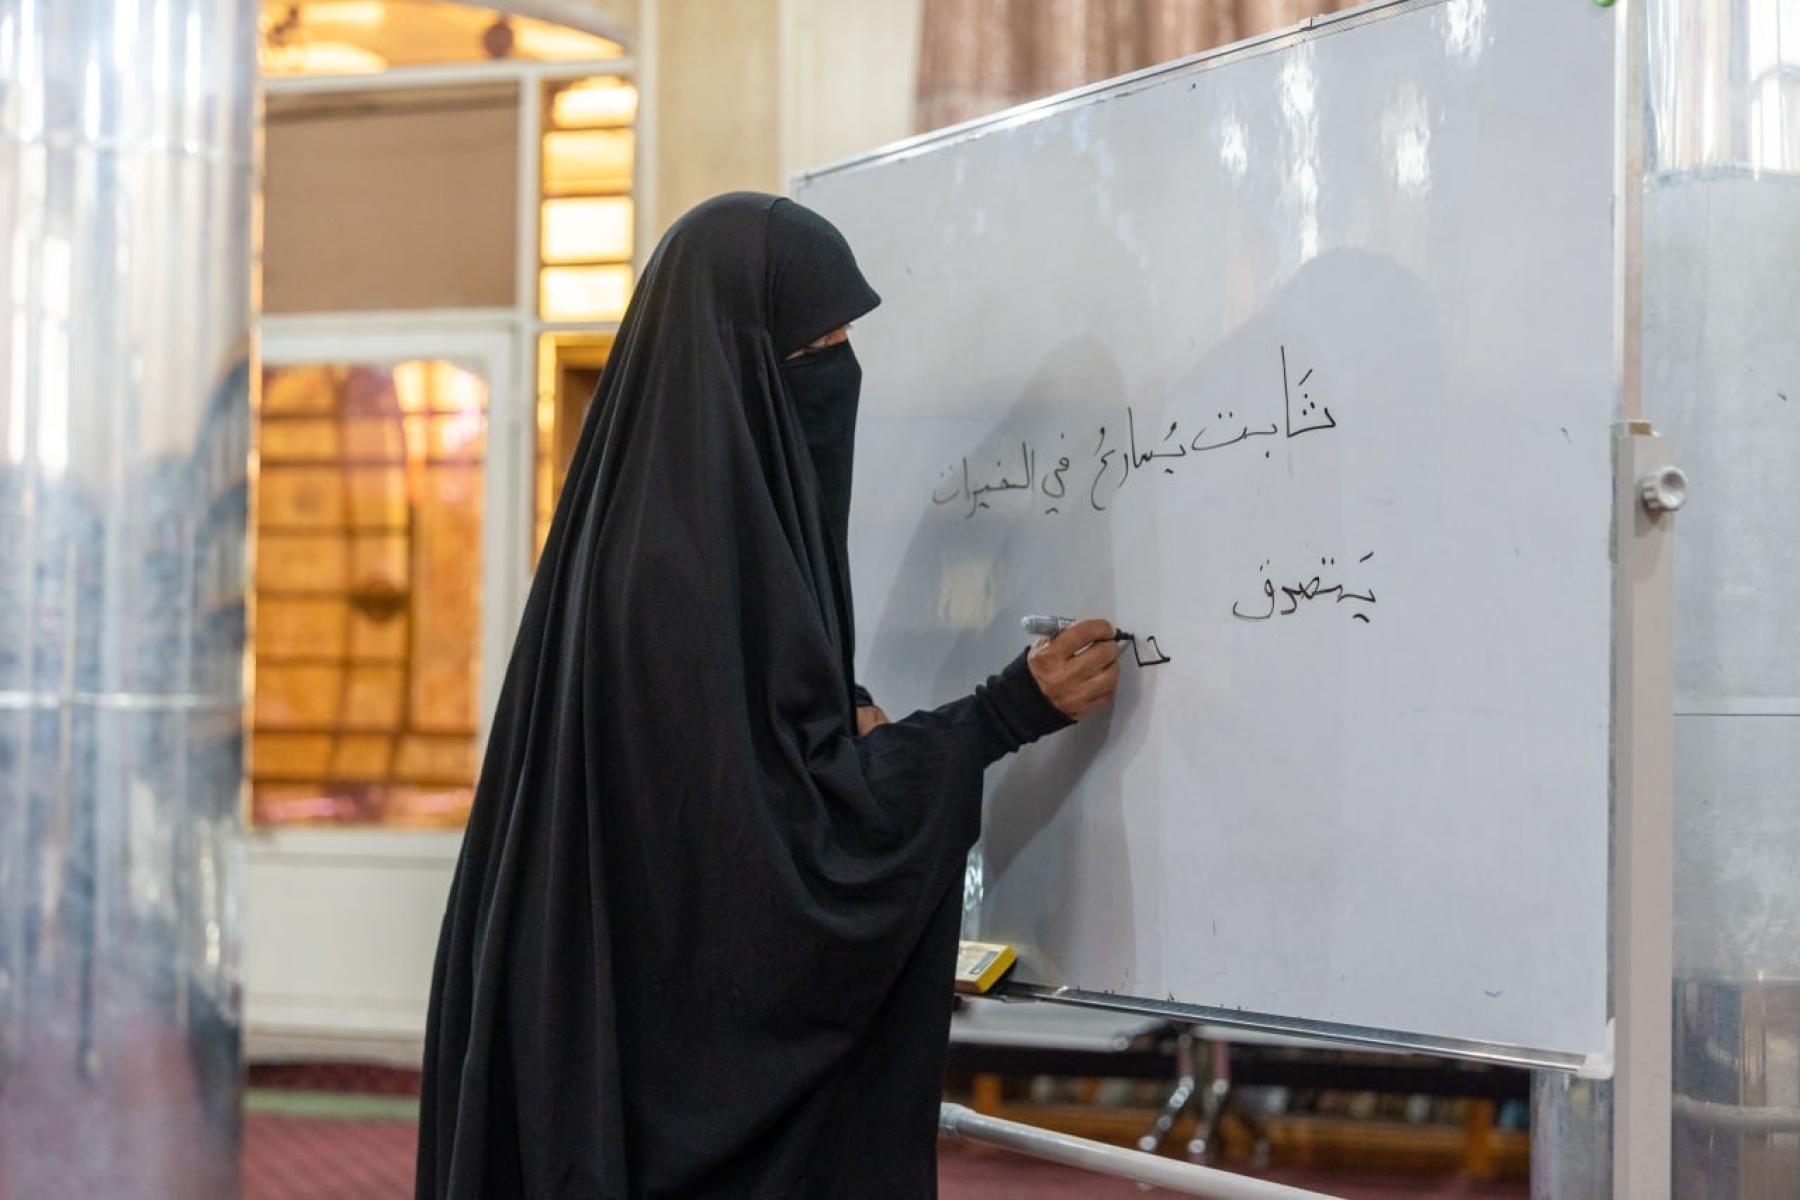 ثَابت يُسارعُ في الخيرات
يَتصدق